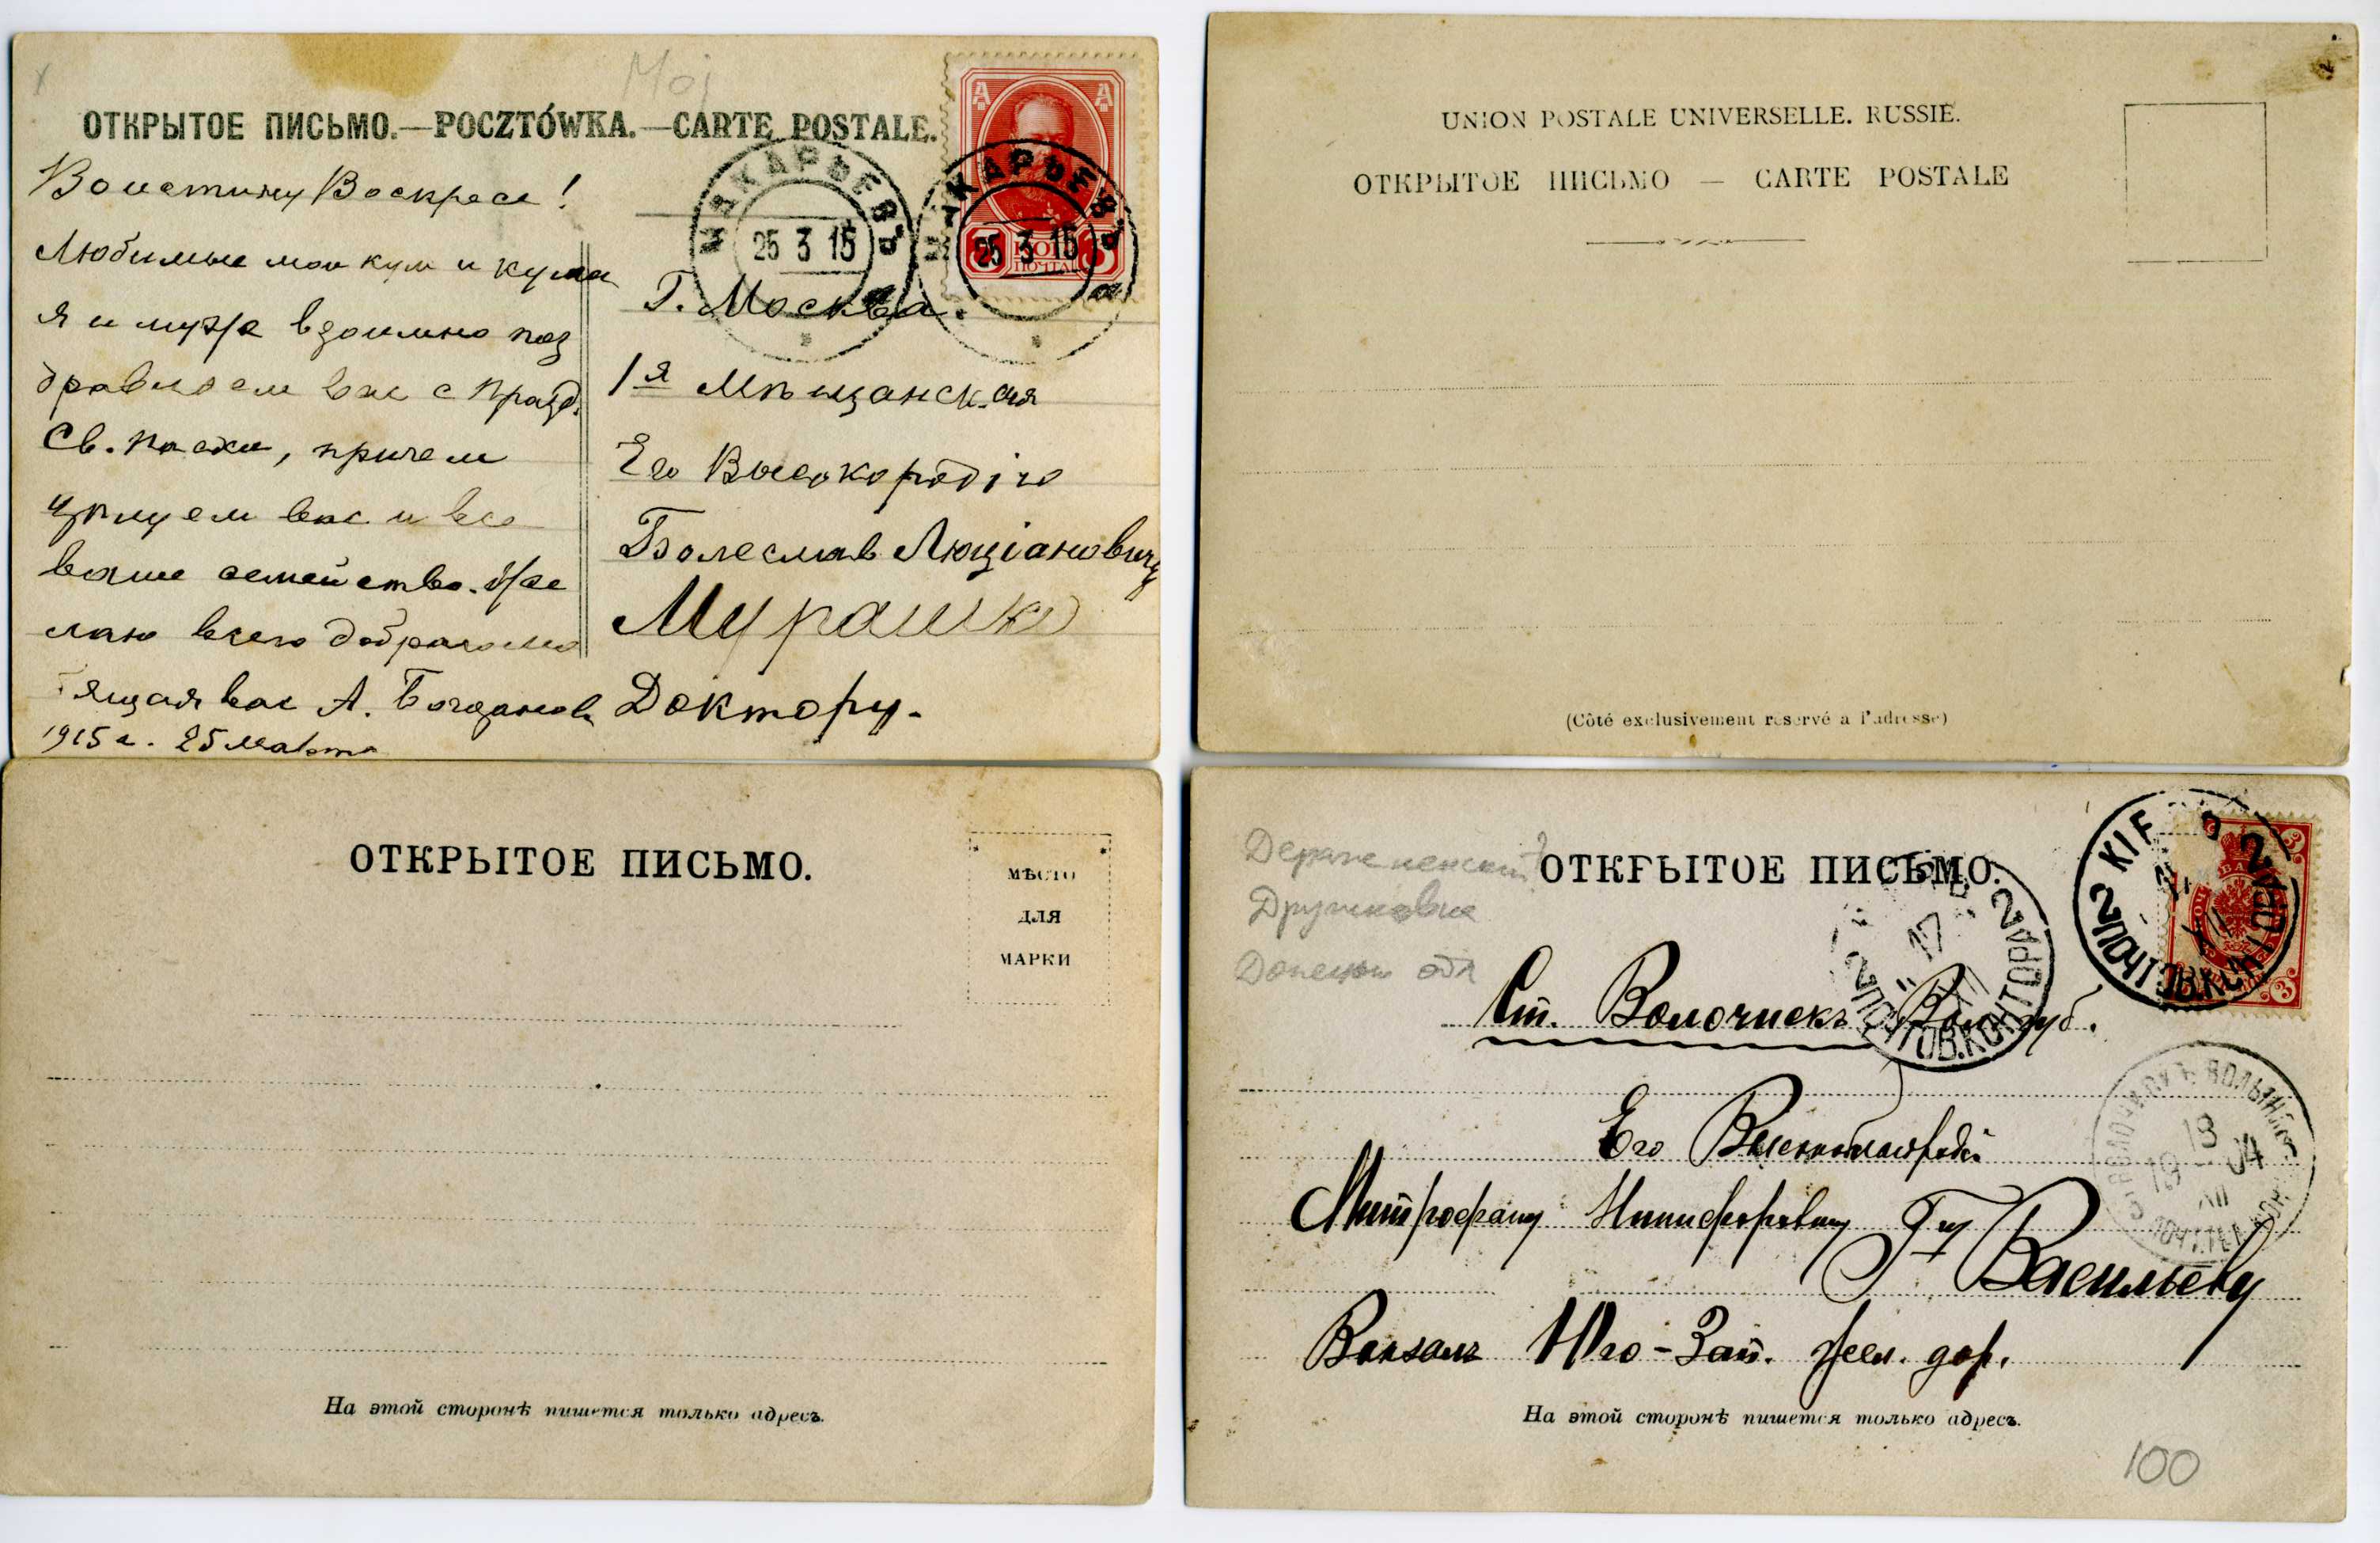 Мој
ОТКРЫТОЕ ПИСЬМО.—POCZTÓWKA.—CARTE POSTALE.
Воистину Воскресе!
Любимые мои кум и кума
я и муже взаимно поз
дравляем вас с празд.
Св. пасхи, причем
цѣлуем вас и все
ваше семейство. Же
лаю всего доброго
вас А. Богданов
1915 г. 25 марта
МАКАРЬЕВЪ
25 3 15
МАКАРЬЕВЪ
25 3 15
3 КОП 3
ПОЧТА
Г. Москва.
1я Мѣщанская
Его Высокородію
Болеслав Люціановичу
Мурашко
Доктору.
UNION POSTALE UNIVERSELLE. RUSSIE.
ОТКРЫТОЕ ПИСЬМО — CARTE POSTALE
(Côté exclusivement reservé a l'adresse)
ОТКРЫТОЕ ПИСЬМО.
МѢСТО
ДЛЯ
МАРКИ
На этой сторонѣ пишется только адресъ.
Дружковка
Донецкая обл
ОТКРЫТОЕ ПИСЬМО.
2 ПОЧТОВ.КОНТОРА 2
17
KIE
2 ПОЧТОВ.КОНТОРА 2
Ст. Волочискъ Вол. губ.
18
19 04
Его Высокоблагороді
Митрофану Никифоровичу Г-ну
Васильеву
Вокзалъ Юго-Зап. жел. дор.
На этой сторонѣ пишется только адресъ.
100